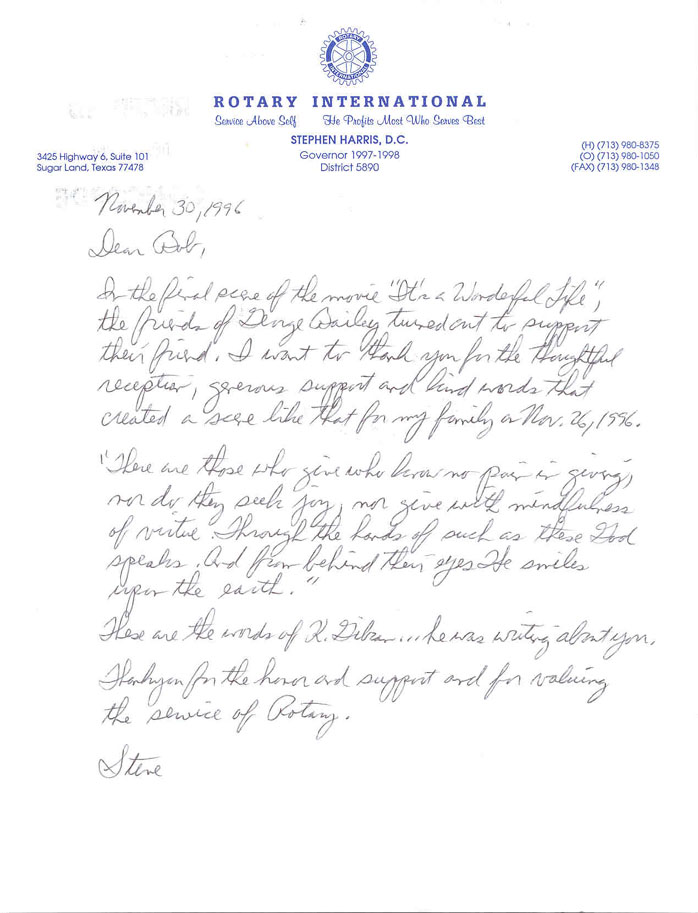 ROTARY
INTERNATIONAL
ROTARY INTERNATIONAL
Service Above Self He Profits Most Who Serves Best
STEPHEN HARRIS, D.C.
Governor 1997-1998
District 5890
3425 Highway 6, Suite 101
Sugar Land, Texas 77478
(H) (713) 980-8375
(O) (713) 980-1050
(FAX) (713) 980-1348
November 30, 1996
Dear Bob,
In the final scene of the movie "It's a Wonderful Life",
the friends of George Bailey turned out to support
their friend. I want to thank you for the thoughtful
reception, generous support and kind words that
created a scene like that for my family on Nov. 26, 1996.
"There are those who give who know no pain in giving,
nor do they seek joy, nor give with mindfulness
of virtue. Through the hands of such as these God
speaks. And from behind their eyes He smiles
upon the earth."
These are the words of K. Gibran... he was writing about you.
Thank you for the honor and support and for valuing
the service of Rotary.
Steve